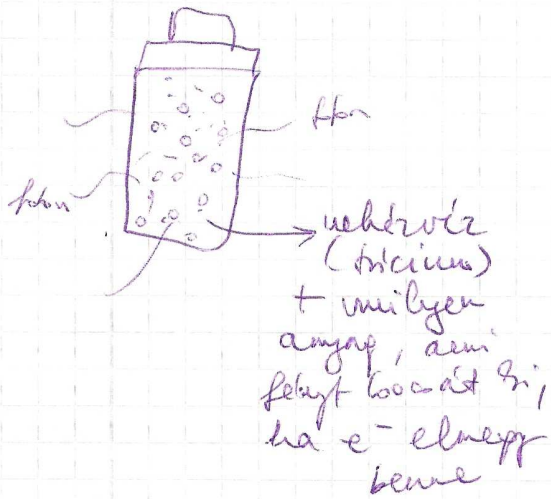 foton
foton
nehézvíz
(trícium)
+ vmilyen
anyag, ami
fényt bocsát ki,
ha e⁻ elmegy
benne